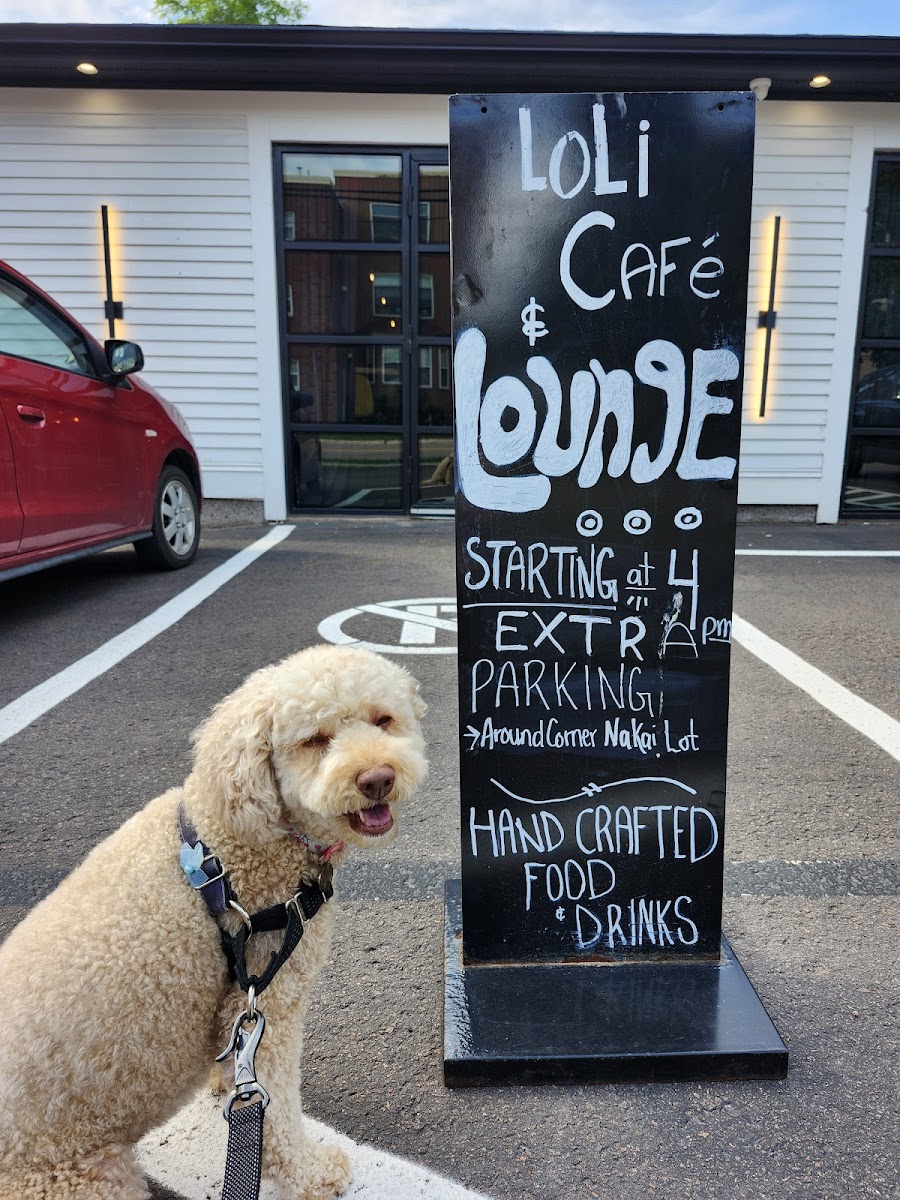 LOLi
CAFé
&
LOUNGE
STARTING at 4
pm
EXTRA
PARKING
→Around Corner Nakai Lot
HAND CRAFTED
FOOD
& DRINKS